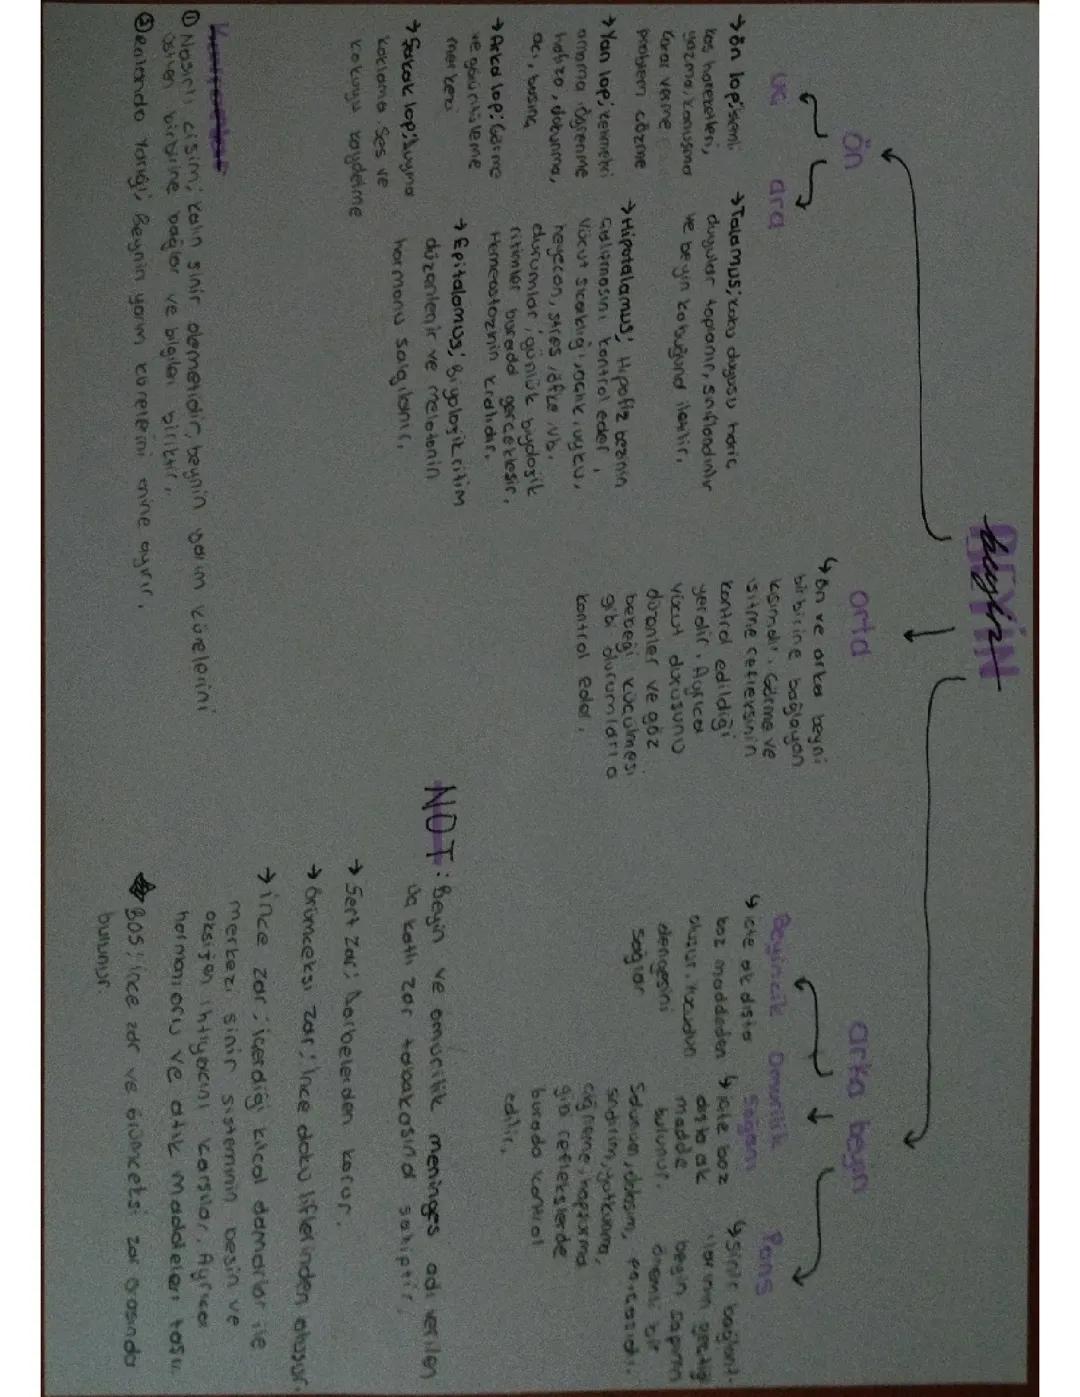 BEYİN
beyin
ön
orta
arka beyin
uç
ara
→ön lop;istemli
kas hareketleri,
yazma, konuşma
karar verme
problem çözme
→Yan lop;
anlama öğrenme
hafıza, dokunma,
acı, basınç
→Arka lop; Görme
ve görüntüleme
merkezi
→Şakak lop; Duyma
koklama ses ve
kokuyu kaydetme
→Talamus; koku duyusu hariç
duyular toplanır, sınıflandırılır
ve beyin kabuğuna iletilir.
→Hipotalamus; Hipofiz bezinin
çalışmasını kontrol eder,
Vücut sıcaklığı, açlık, uyku,
heyecan, stres, öfke vb.
durumlar, günlük biyolojik
ritimler burada gerçekleşir.
Homeostazinin kralıdır.
→Epitalamus; Biyolojik ritim
düzenlenir ve melatonin
hormonu salgılanır.
↳ ön ve arka beyni
birbirine bağlayan
kısımdır. Görme ve
işitme refleksinin
kontrol edildiği
yerdir. Ayrıca
vücut duruşunu
düzenler ve göz
bebeği küçülmesi
gibi durumlarıa
kontrol eder.
Beyincik
↳ içte ak dışta
boz maddeden
oluşur. Vücudun
dengesini
sağlar
Omurilik
Soğanı
↳ içte boz
dışta ak
madde
bulunur.
Solunum, dolaşım,
sindirim, yutkunma,
çiğneme, hapşırma
gibi reflekslerde
burada kontrol
edilir.
Pons
↳ Sinir bağlant-
ılarının geçtiği
beyin sapının
önemli bir
parçasıdır.
① Nasırlı cisim; kalın sinir demetidir, beynin yarım kürelerini
üstten birbirine bağlar ve bilgileri biriktir.
② Rolando Yarığı; Beynin yarım kürelerini enine ayırır.
NOT: Beyin ve omurilik meninges adı verilen
üç katlı zar tabakasına sahiptir.
→ Sert zar; Darbelerden korur.
→ örümceksi zar; ince doku liflerinden oluşur.
→ ince zar; içerdiği kılcal damarlar ile
merkezi sinir sisteminin besin ve
oksijen ihtiyacını karşılar. Ayrıca
hormonları ve atık maddeleri taşır.
BOS; ince zar ve örümceksi zar arasında
bulunur.